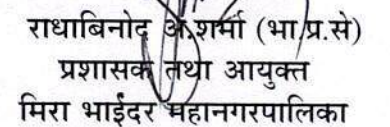 राधाबिनोद अ.शर्मा (भा.प्र.से)
प्रशासक तथा आयुक्त
मिरा भाईंदर महानगरपालिका